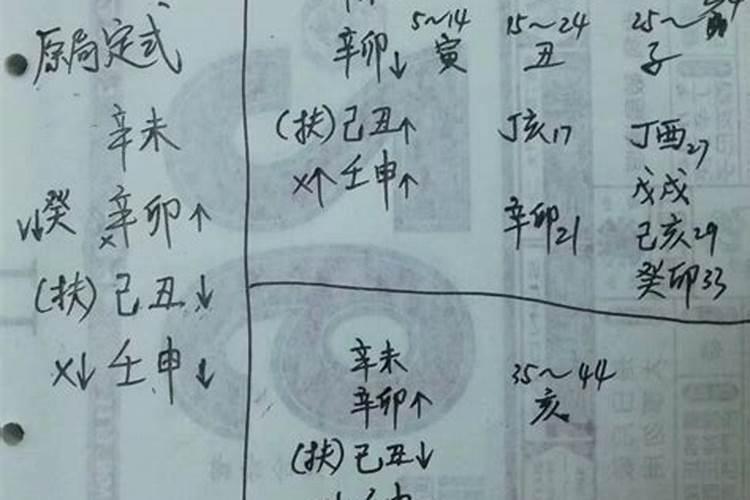 原局定式
辛未
↓癸 ×辛卯↑
(扶)己丑↓
×↓壬申↓
5~14 15~24 25~
辛卯↓ 寅 丑 子
(扶)己丑↑ 丁亥17 丁酉27
×↑壬申↑ 戊戌
辛卯21 己亥29
癸卯33
辛未 35~44
辛卯↑ 亥
(扶)己丑↓